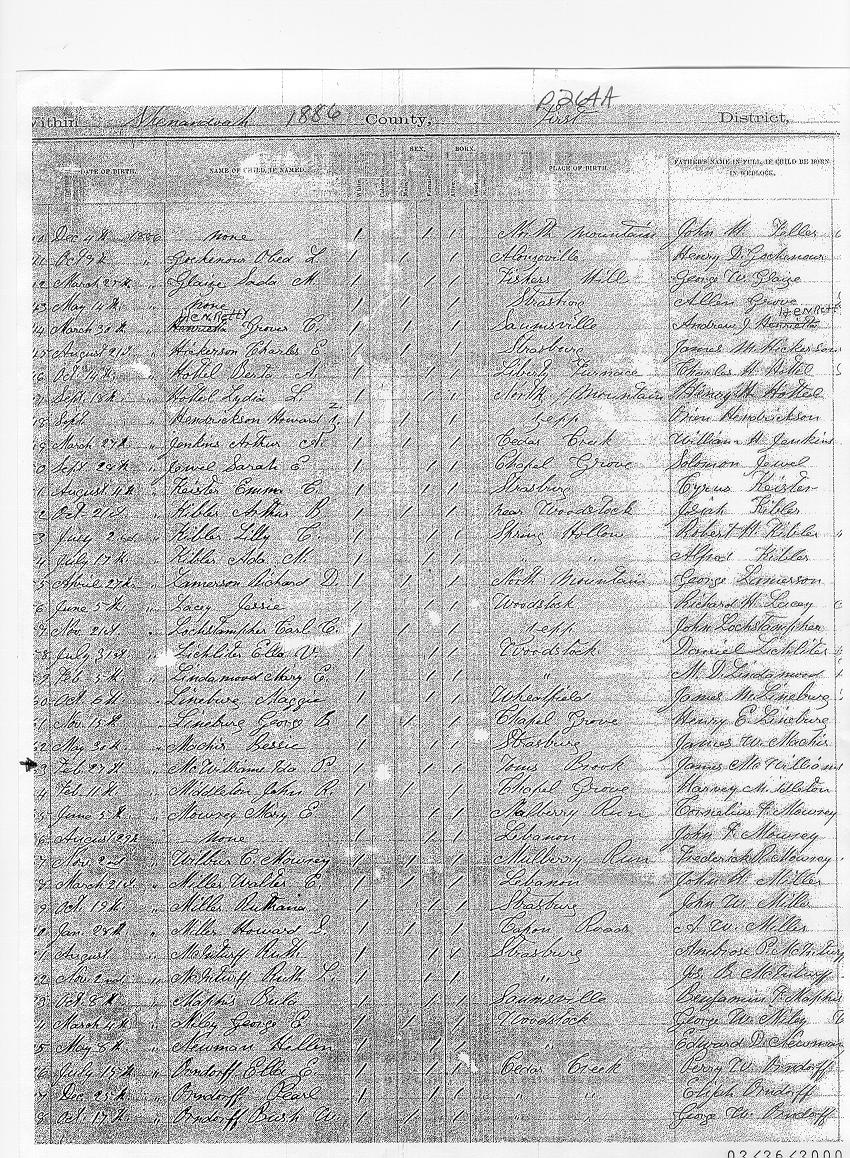 P. 264A
Within Shenandoah 1886 County, First District,
DATE OF BIRTH. NAME OF CHILD, IF NAMED. SEX. BORN. PLACE OF BIRTH. FATHER'S NAME IN FULL, IF CHILD BE BORN IN WEDLOCK.
Dec 4th 1886 none 1 1 1 North Mountain John M. Feller
Oct 9th " Gochenour Obed L. 1 1 1 Alonsville Henry D. Gochenour
March 27th " Glaize Sada M. 1 1 1 Fishers Hill George W. Glaize
May 14th " none 1 1 1 Strasburg Allen Grove
HENRETTY HENRETTY
March 30th " Henrietta Grover C. 1 1 1 Saumsville Andrew J. Henrietta
August 21st " Hickerson Charles E. 1 1 1 Strasburg James M. Hickerson
Oct 14th " Hottel Berta A. 1 1 1 Liberty Furnace Charles H. Hottel
Sept 13th " Hottel Lydia L. 1 1 1 North Mountain Henry H. Hottel
Sept. " Hendrickson Howard 1 1 1 Zepp Orien Hendrickson
March 27th " Jenkins Arthur A. 1 1 1 Cedar Creek William H. Jenkins
Sept 28th " Jewel Sarah E. 1 1 1 Chapel Grove Solomon Jewel
August 4th " Keister Emma C. 1 1 1 Strasburg Cyrus Keister
Oct 21st " Kibler Arthur B. 1 1 1 near Woodstock Josiah Kibler
July 2nd " Kibler Lilly C. 1 1 1 Spring Hollow Robert H. Kibler
July 17th " Kibler Ada M. 1 1 1 " Alfred Kibler
April 27th " Lamerson Richard D. 1 1 1 North Mountain George Lamerson
June 5th " Lacey Jessie 1 1 1 Woodstock Richard H. Lacey
Nov. 21st " Lochstampher Carl C. 1 1 1 Zepp John Lochstampher
July 31st " Lichliter Ella V. 1 1 1 Woodstock Daniel Lichliter
Feb 5th " Lindamood Mary C. 1 1 1 " M. D. Lindamood
Oct 6th " Lineburg Maggie 1 1 1 Wheatfield James M. Lineburg
Nov. 15th " Lineburg George B. 1 1 1 Chapel Grove Henry E. Lineburg
May 30th " Machir Bessie 1 1 1 Strasburg James W. Machir
Feb 27th " McWilliams Ida P. 1 1 1 Toms Brook James McWilliams
Feb 11th " Middleton John R. 1 1 1 Chapel Grove Harvey Middleton
June 5th " Mowrey Mary E. 1 1 1 Mulberry Run Cornelius F. Mowrey
August 29th " none 1 1 1 Lebanon John F. Mowrey
Nov. 2nd " Wilbur C. Mowrey 1 1 1 Mulberry Run Frederick R. Mowrey
March 21st " Miller Walter E. 1 1 1 Lebanon John H. Miller
Oct. 19th " Miller Ruthana 1 1 1 Strasburg John W. Miller
Jan. 28th " Miller Howard S. 1 1 1 Capon Roads A. W. Miller
August " McInturff Ruth 1 1 1 Strasburg Ambrose P. McInturff
Nov. 2nd " McInturff Ruth L. 1 1 1 " Js. B. McInturff
Oct. 8th " Maphis Bula 1 1 1 Saumsville Benjamin F. Maphis
March 4th " Miley George E. 1 1 1 Woodstock George W. Miley
May 8th " Newman Hellen 1 1 1 " Edward D. Newman
July 15th " Orndorff Ella C. 1 1 1 Cedar Creek Perry W. Orndorff
Dec 25th " Orndorff Pearl 1 1 1 " " Elijah Orndorff
Oct. 17th " Orndorff Bush W. 1 1 1 " " George W. Orndorff
02/26/2000